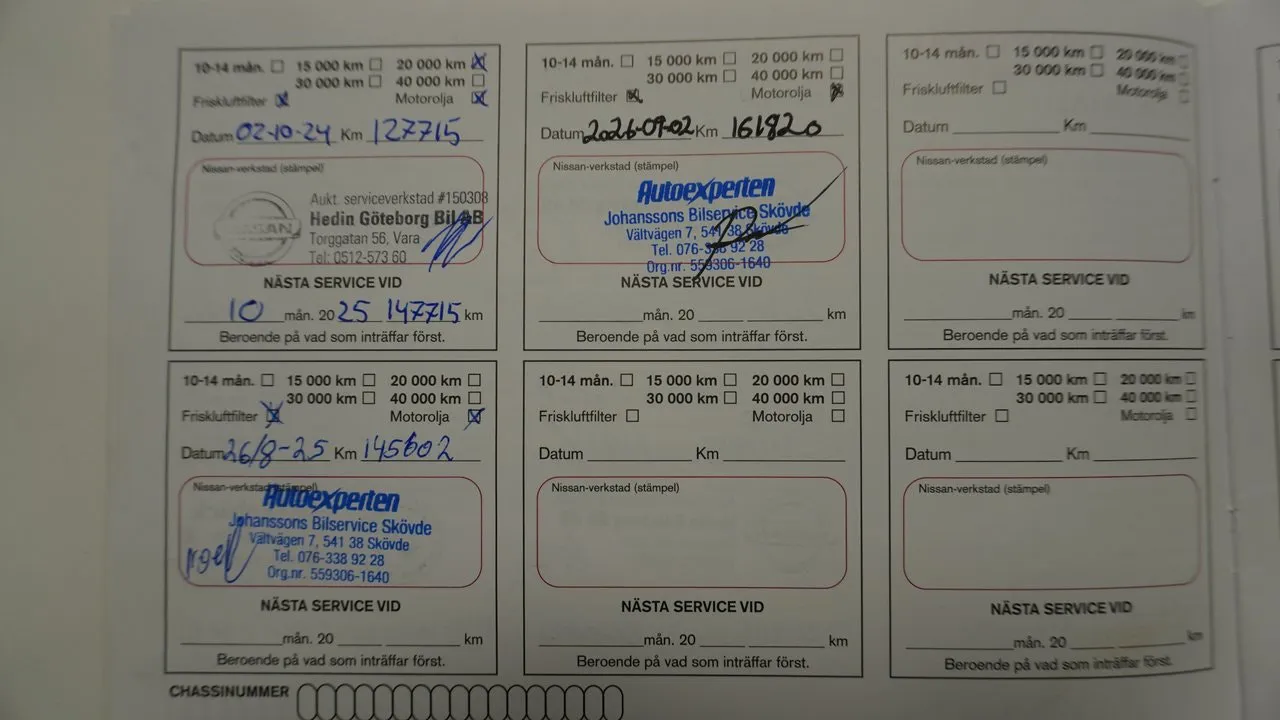 10-14 mån. 15 000 km 20 000 km
30 000 km 40 000 km
Friskluftfilter Motorolja
Datum 02-10-24 Km 127715
Nissan-verkstad (stämpel)
NISSAN
Aukt. serviceverkstad #150308
Hedin Göteborg Bil AB
Torggatan 56, Vara
Tel: 0512-573 60
NÄSTA SERVICE VID
10 mån. 20 25 147715 km
Beroende på vad som inträffar först.
10-14 mån. 15 000 km 20 000 km
30 000 km 40 000 km
Friskluftfilter Motorolja
Datum 2026-09-02 Km 161820
Nissan-verkstad (stämpel)
Autoexperten
Johanssons Bilservice Skövde
Vältvägen 7, 541 38 Skövde
Tel. 076-338 92 28
Org.nr. 559306-1640
NÄSTA SERVICE VID
mån. 20 km
Beroende på vad som inträffar först.
10-14 mån. 15 000 km 20 000 km
30 000 km 40 000 km
Friskluftfilter Motorolja
Datum Km
Nissan-verkstad (stämpel)
NÄSTA SERVICE VID
mån. 20 km
Beroende på vad som inträffar först.
10-14 mån. 15 000 km 20 000 km
30 000 km 40 000 km
Friskluftfilter Motorolja
Datum 26/8-25 Km 145602
Nissan-verkstad (stämpel)
Autoexperten
Johanssons Bilservice Skövde
Vältvägen 7, 541 38 Skövde
Tel. 076-338 92 28
Org.nr. 559306-1640
NÄSTA SERVICE VID
mån. 20 km
Beroende på vad som inträffar först.
10-14 mån. 15 000 km 20 000 km
30 000 km 40 000 km
Friskluftfilter Motorolja
Datum Km
Nissan-verkstad (stämpel)
NÄSTA SERVICE VID
mån. 20 km
Beroende på vad som inträffar först.
10-14 mån. 15 000 km 20 000 km
30 000 km 40 000 km
Friskluftfilter Motorolja
Datum Km
Nissan-verkstad (stämpel)
NÄSTA SERVICE VID
mån. 20 km
Beroende på vad som inträffar först.
CHASSINUMMER